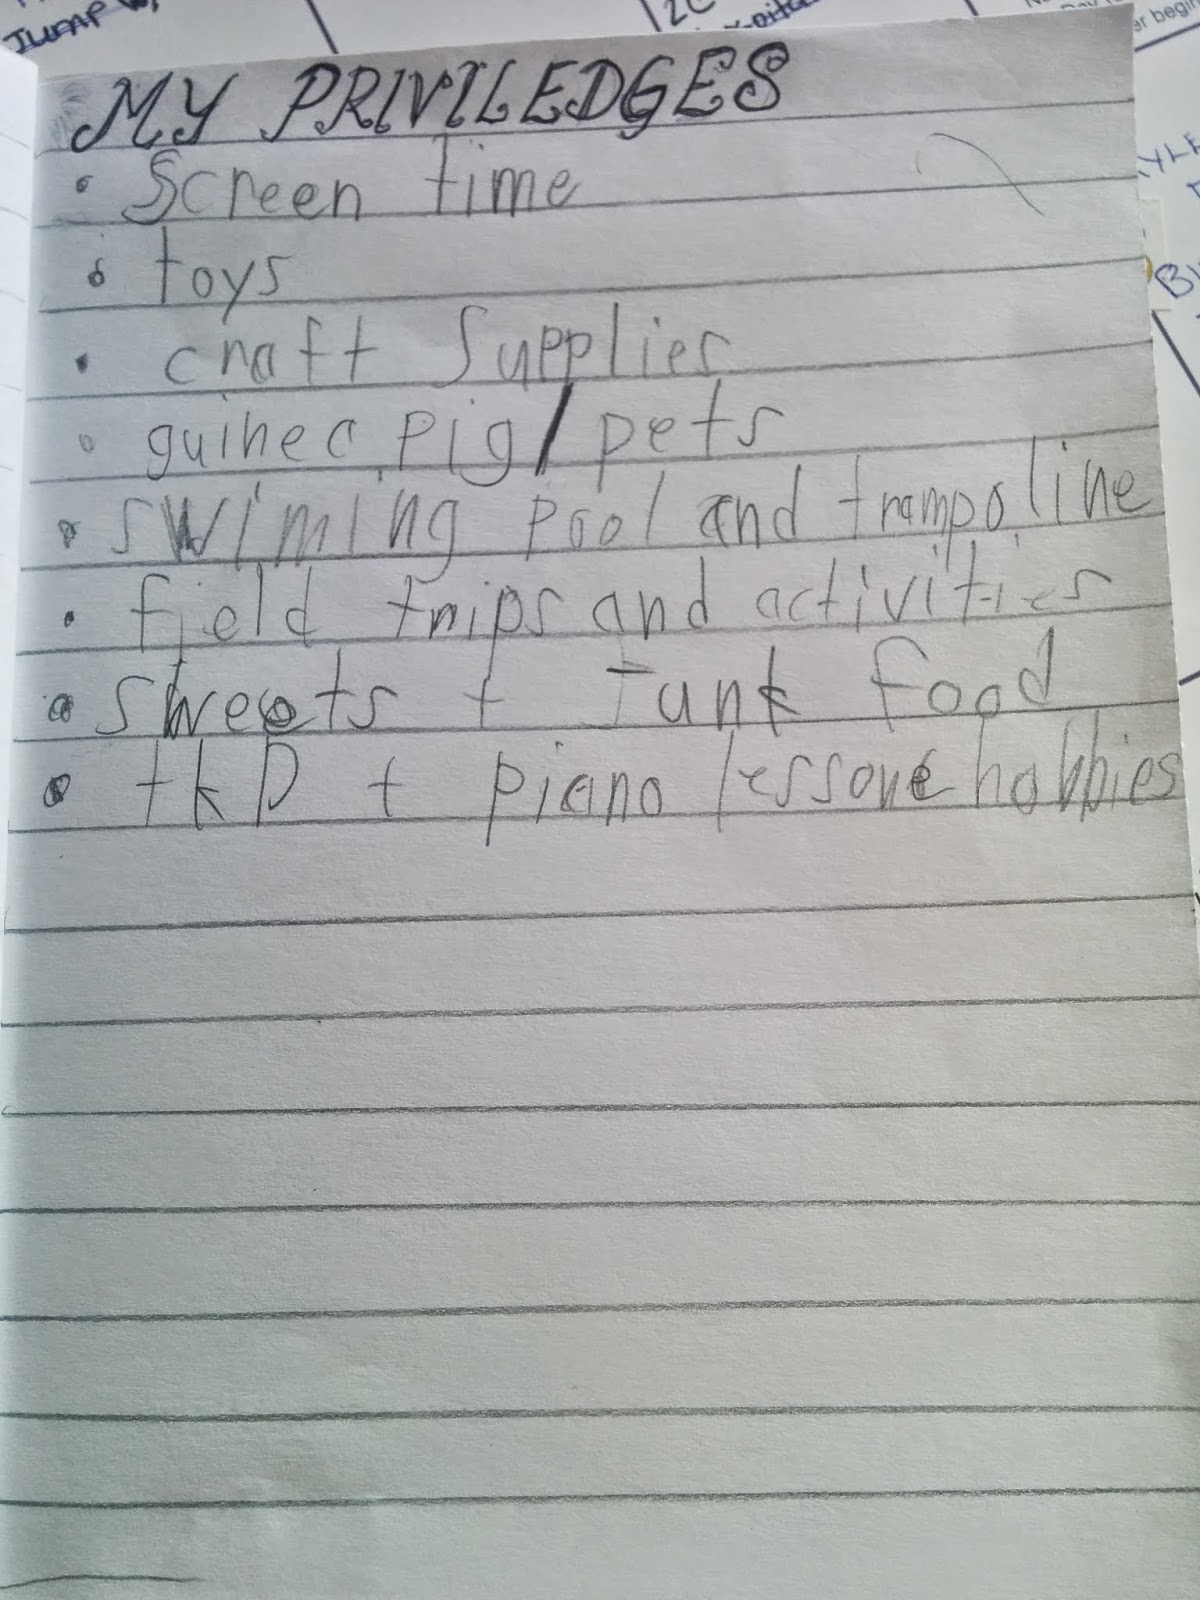 MY PRIVILEDGES
• Screen time
• toys
• craft Supplies
• guinea pig/pets
• swiming pool and trampoline
• field trips and activities
• sweets + Junk food
• tkD + piano lessons hobbies
er begin